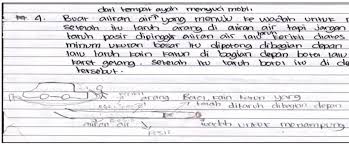 dari tempat ayah mencuci mobil.
4. Buat aliran air yang menuju ke wadah untuk
setelah itu taruh arang di aliran air tapi jangan
taruh pasir dipinggir aliran air lalu kerikil diatas
minum ukuran besar itu dipotong dibagian depan
lalu taruh kain katun di bagian depan botol lalu
karet gelang, setelah itu taruh botol itu di
tersebut.
arang Botol, kain katun yang
telah ditaruh dibagian depan
aliran air
pasir
wadah untuk menampung